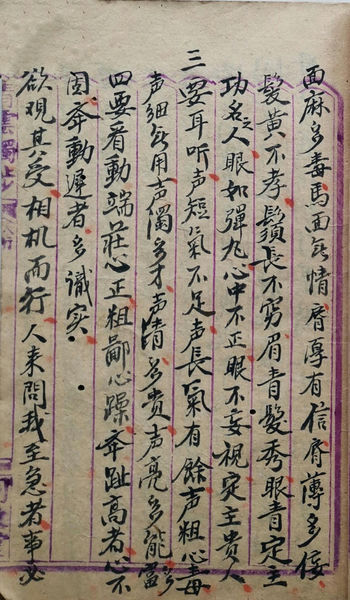 面麻多毒馬面無情唇厚有信唇薄多佞
髮黃不孝鬚長不穷眉青髮秀眼青定主
功名之人眼如彈丸心中不正眼不妄視定主貴人
三要耳听声短氣不足声長氣有餘声粗心毒
声細無用声濁多才声清多贵声亮多能當
四要看動端莊心正粗鄙心躁奔趾高者心不
固奔動遲者多識实
欲現其受相机而行人来問我至急者事必